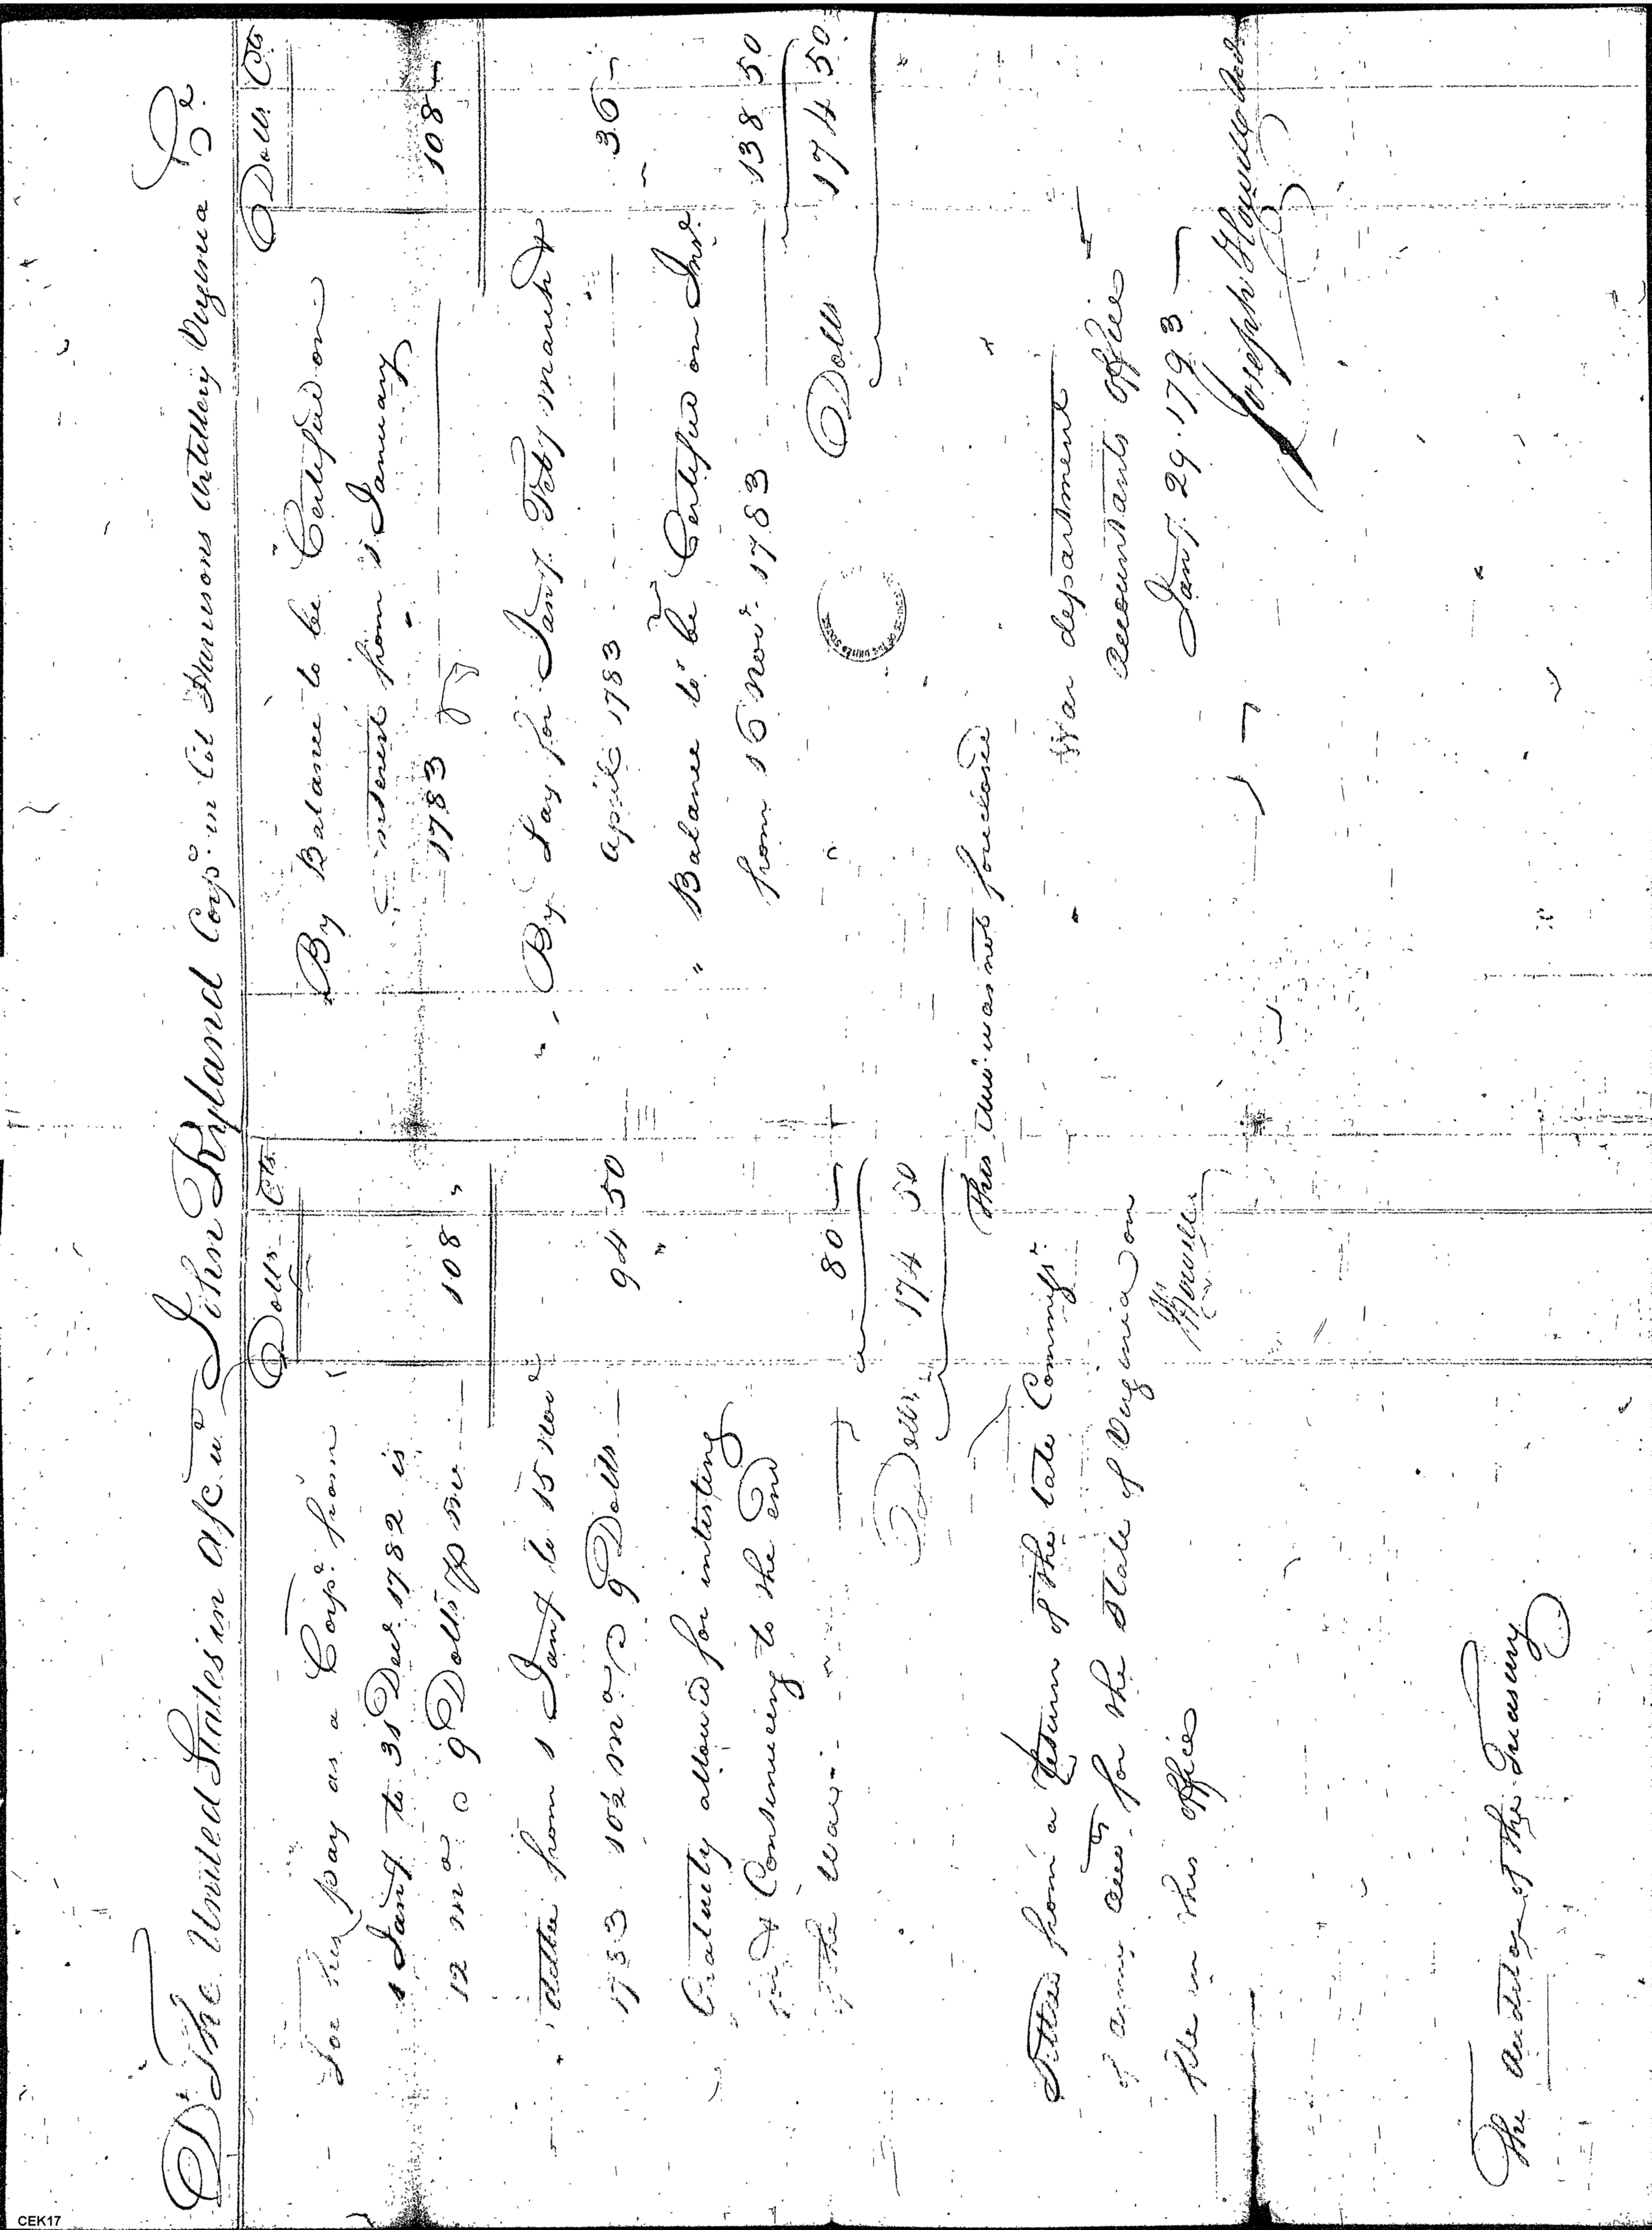 Dr The United States in a/c wt John Ryland Corpl in Col Harrisons Artillery Virginia Cr
Dolls Cts
For his pay as a Corpl from
1 Jany to 31 Decr 1782 is
12 mo @ 9 Dolls pr mo
108 "
ditto from 1 Jany to 15 Novr
1783 10½ mo @ 9 Dolls
94 50
Gratuity allowed for inlisting
for & Continueing to the end
of the War
80 —
Dolls 174 50
Dolls Cts
By Balance to be Certified on
interest from 1 January
1783
108 —
By Pay for Jany Feby march &
April 1783
36 —
" Balance to be Certified on Int.
from 16 Novr 1783
138 50
Dolls 174 50
This was not foreclosed
Settled from a Return of the late Commissr
of army accts for the State of Virginia on
file in this office
War department
Accountants office
Jany 29. 1793
Joseph Howell
The Auditor of the Treasury
CEK17